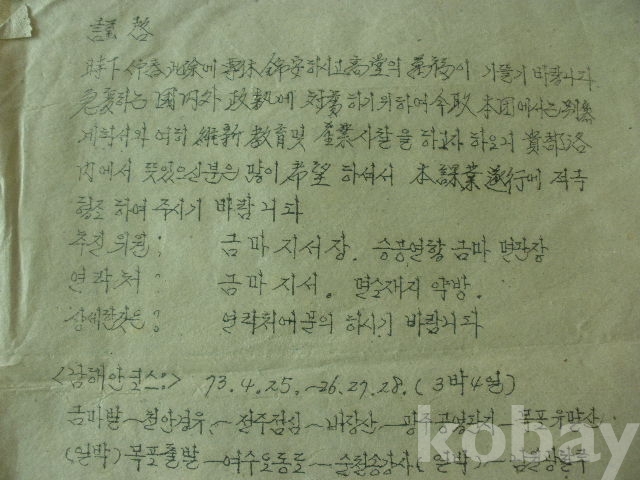 謹啓
時下 仲春之際에 錦安하시고 高堂의 萬福이 기뜰기 바랍니다
急変하는 國内外 政勢에 対處하기 위하여 今般 本団에서는 別紙
계획서와 여히 維新敎育및 産業시찰을 하고자 하오니 貴部落
內에서 뜻있으신분은 많이 希望 하셔서 本課業遂行에 적극
협조 하여 주시기 바랍니다
추진위원; 금마지서장. 승공연합 금마 면단장
연락처; 금마지서. 면소재지 약방.
상세한것은; 연락처에 문의 하시기 바랍니다
<남해안코스:> 73.4.25.~26.27.28. (3박4일)
금마발~천안경유~전주점심~내장산~광주공원관광~목포유달산
(일박) 목포출발~여수오동도~순천송광사(일박)~
kobay